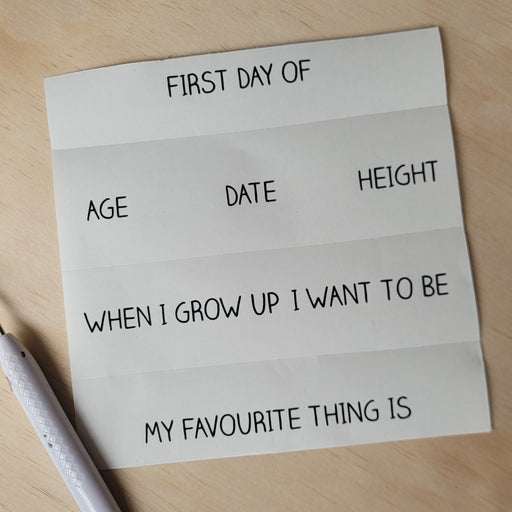 FIRST DAY OF
AGE DATE HEIGHT
WHEN I GROW UP I WANT TO BE
MY FAVOURITE THING IS